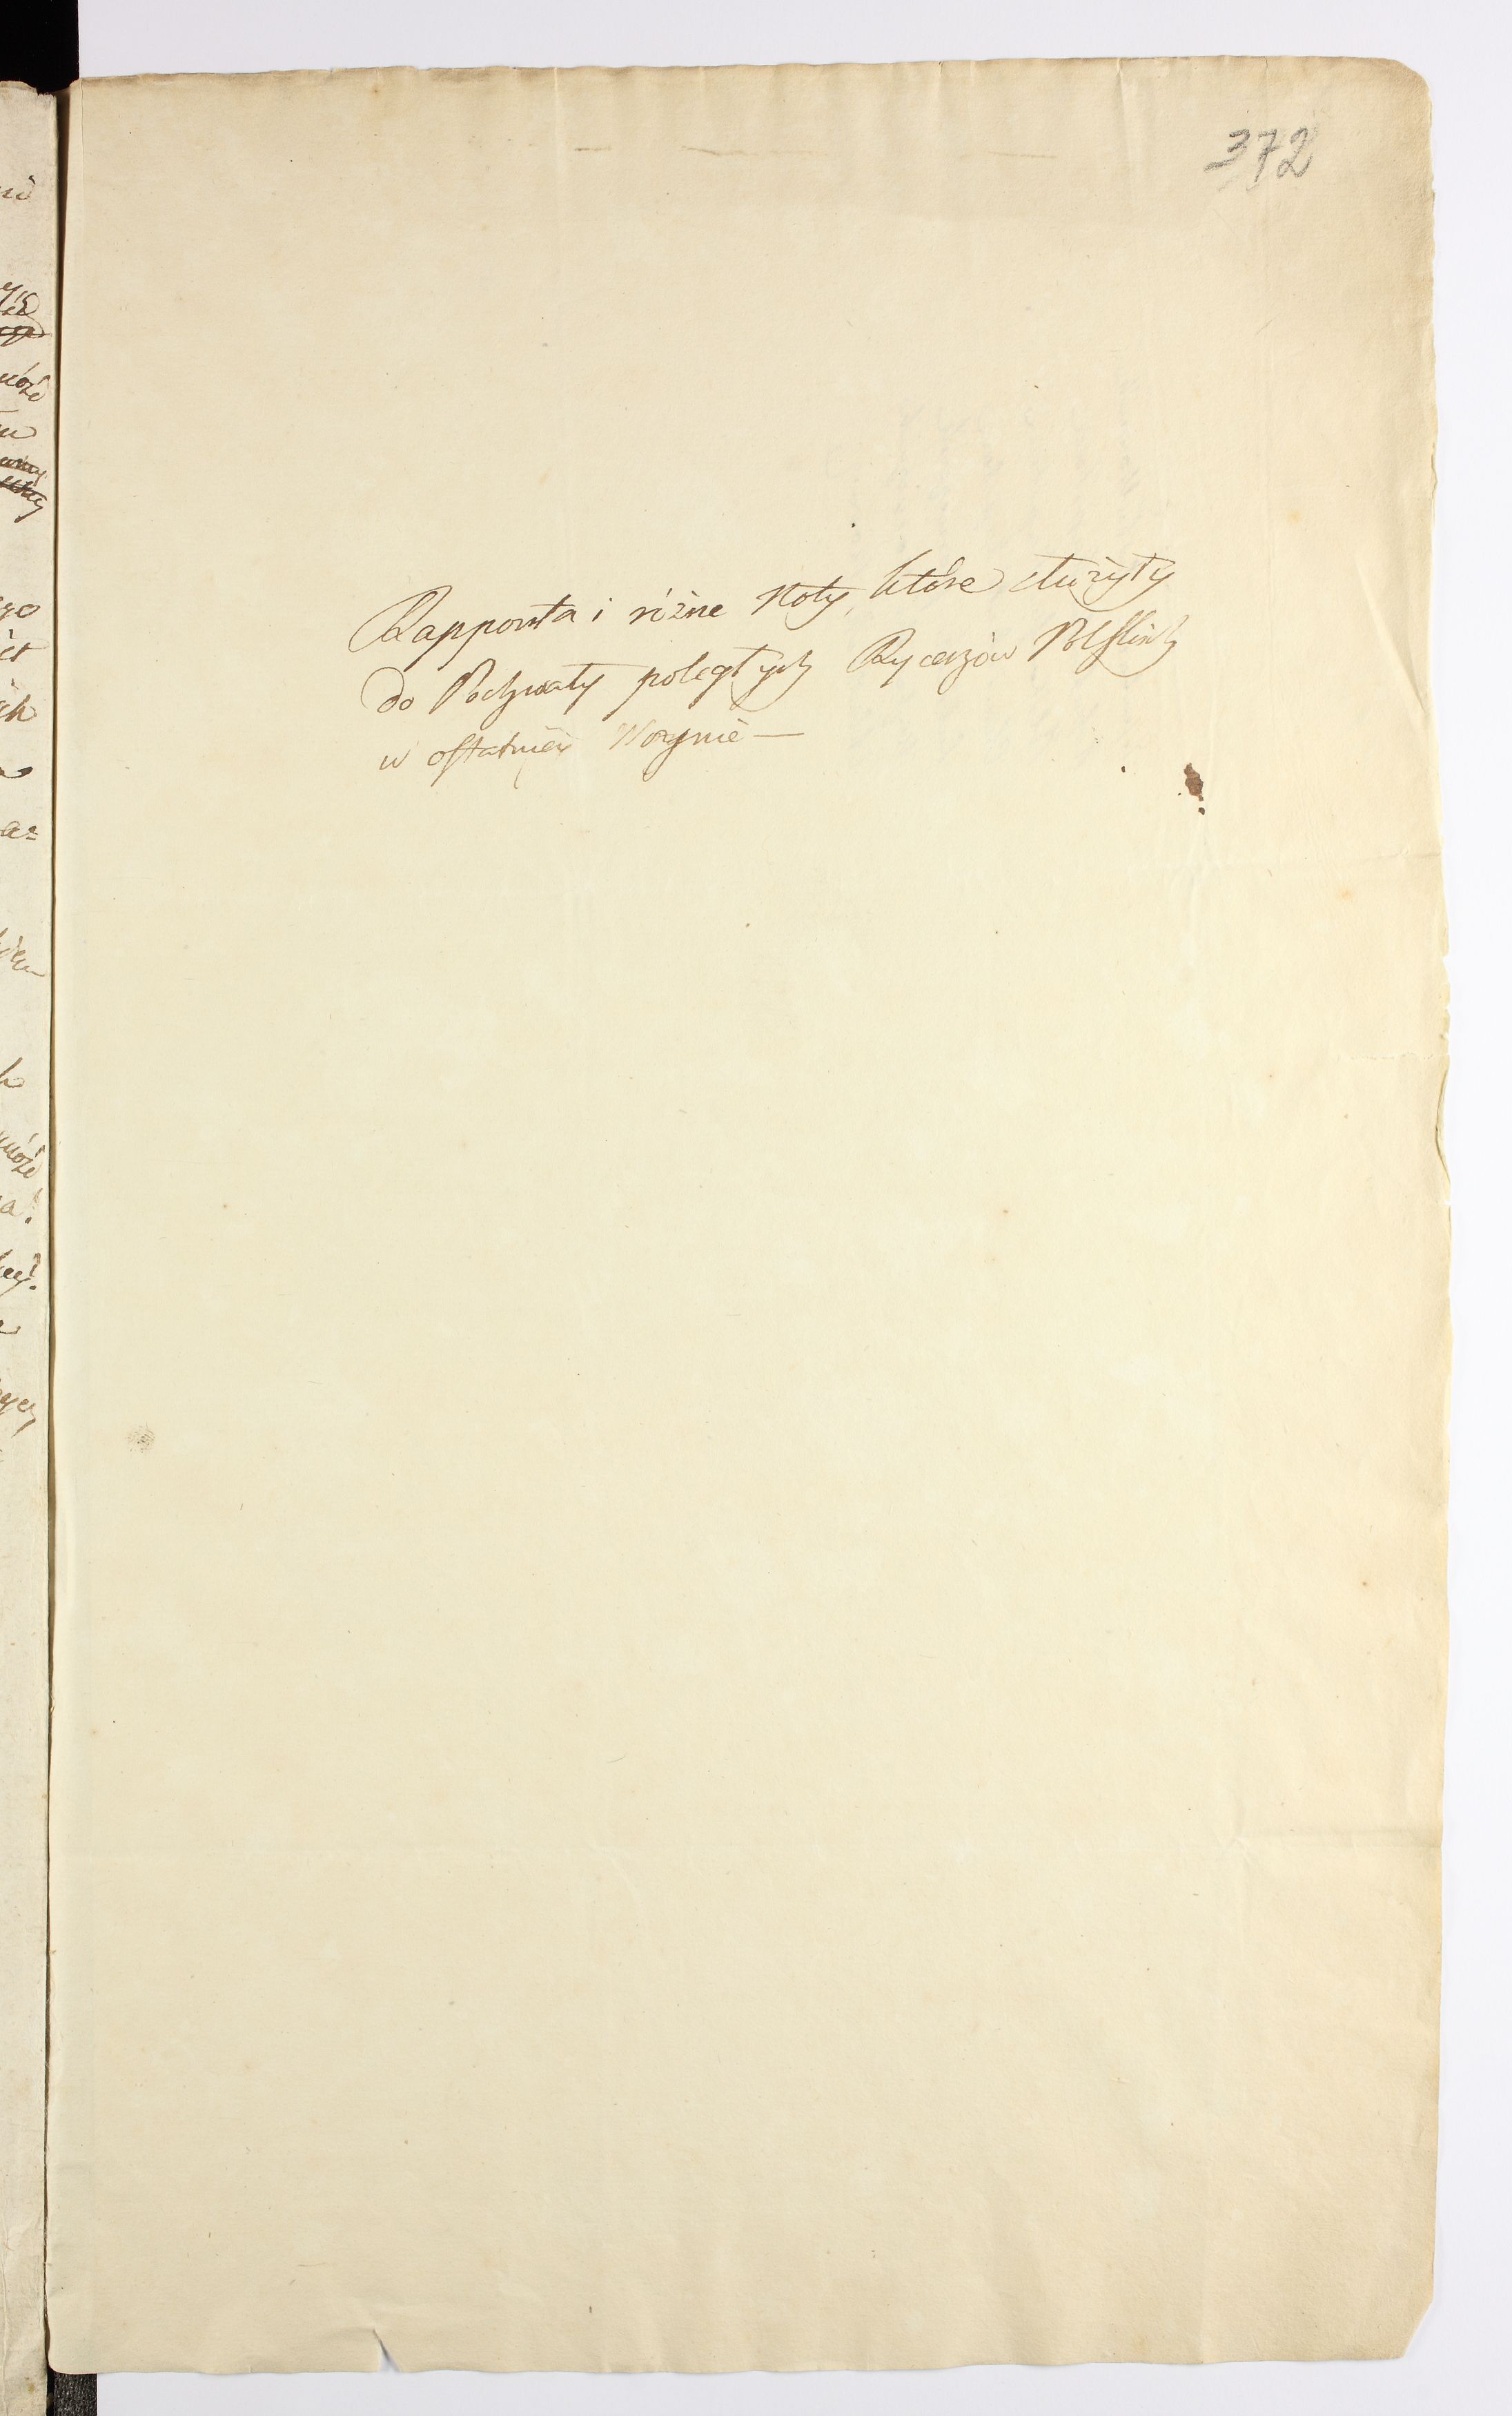 372
Rapporta i rózne Noty, które służyły
do Pochwały poległych Rycerzów Polskich
w ostatniéy Woynie —